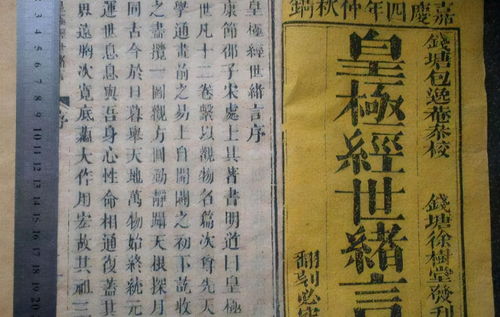 嘉慶四年仲秋鐫
錢塘包逸菴泰校
錢塘徐樹堂發刊
皇極經世緒言
翻刻必究
皇極經世緒言序
康節邵子宋處士其著書明道曰皇極
世凡十二卷繫以觀物名篇次尊先天
學通畫前之易上自開闢之初下收
之一圖方圓動靜躡天根探月
同古今於日暮舉天地萬物始終統元
運世息息與吾身心性命相通復蓋其
界遠胸次寬底蘊大作用宏故其祖三
序
3 4 5 6 7 8 9 10 11 12 13 14 15 16 17 18 19 20